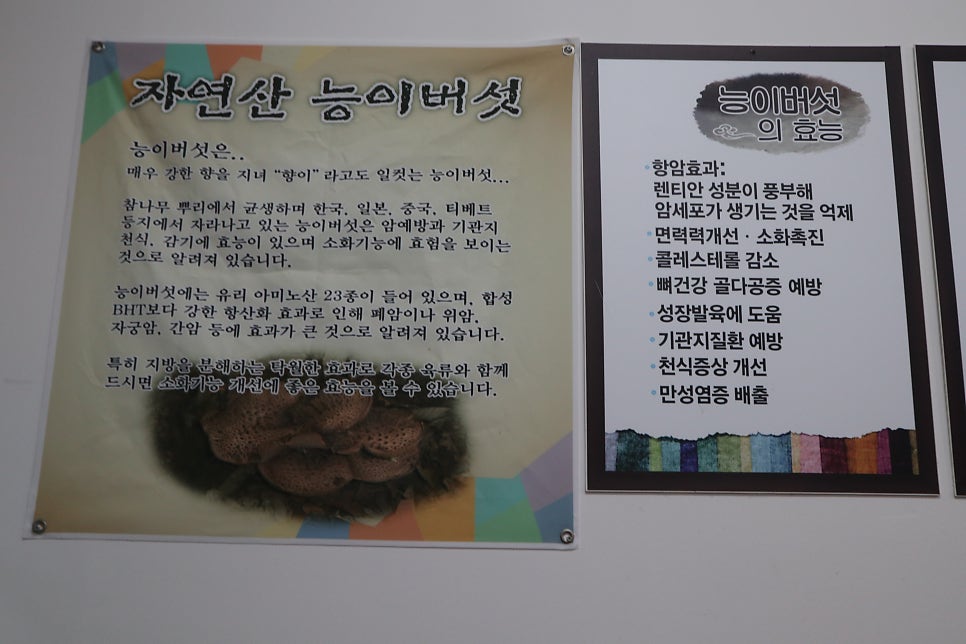 자연산 능이버섯
능이버섯은..
매우 강한 향을 지녀 "향이" 라고도 일컷는 능이버섯...
참나무 뿌리에서 균생하며 한국, 일본, 중국, 티베트
등지에서 자라나고 있는 능이버섯은 암예방과 기관지
천식, 감기에 효능이 있으며 소화기능에 효험을 보이는
것으로 알려져 있습니다.
능이버섯에는 유리 아미노산 23종이 들어 있으며, 합성
BHT보다 강한 항산화 효과로 인해 폐암이나 위암,
자궁암, 간암 등에 효과가 큰 것으로 알려져 있습니다.
특히 지방을 분해하는 탁월한 효과로 각종 육류와 함께
드시면 소화기능 개선에 좋은 효능을 볼 수 있습니다.
능이버섯
의 효능
항암효과:
렌티안 성분이 풍부해
암세포가 생기는 것을 억제
면력력개선 · 소화촉진
콜레스테롤 감소
뼈건강 골다공증 예방
성장발육에 도움
기관지질환 예방
천식증상 개선
만성염증 배출